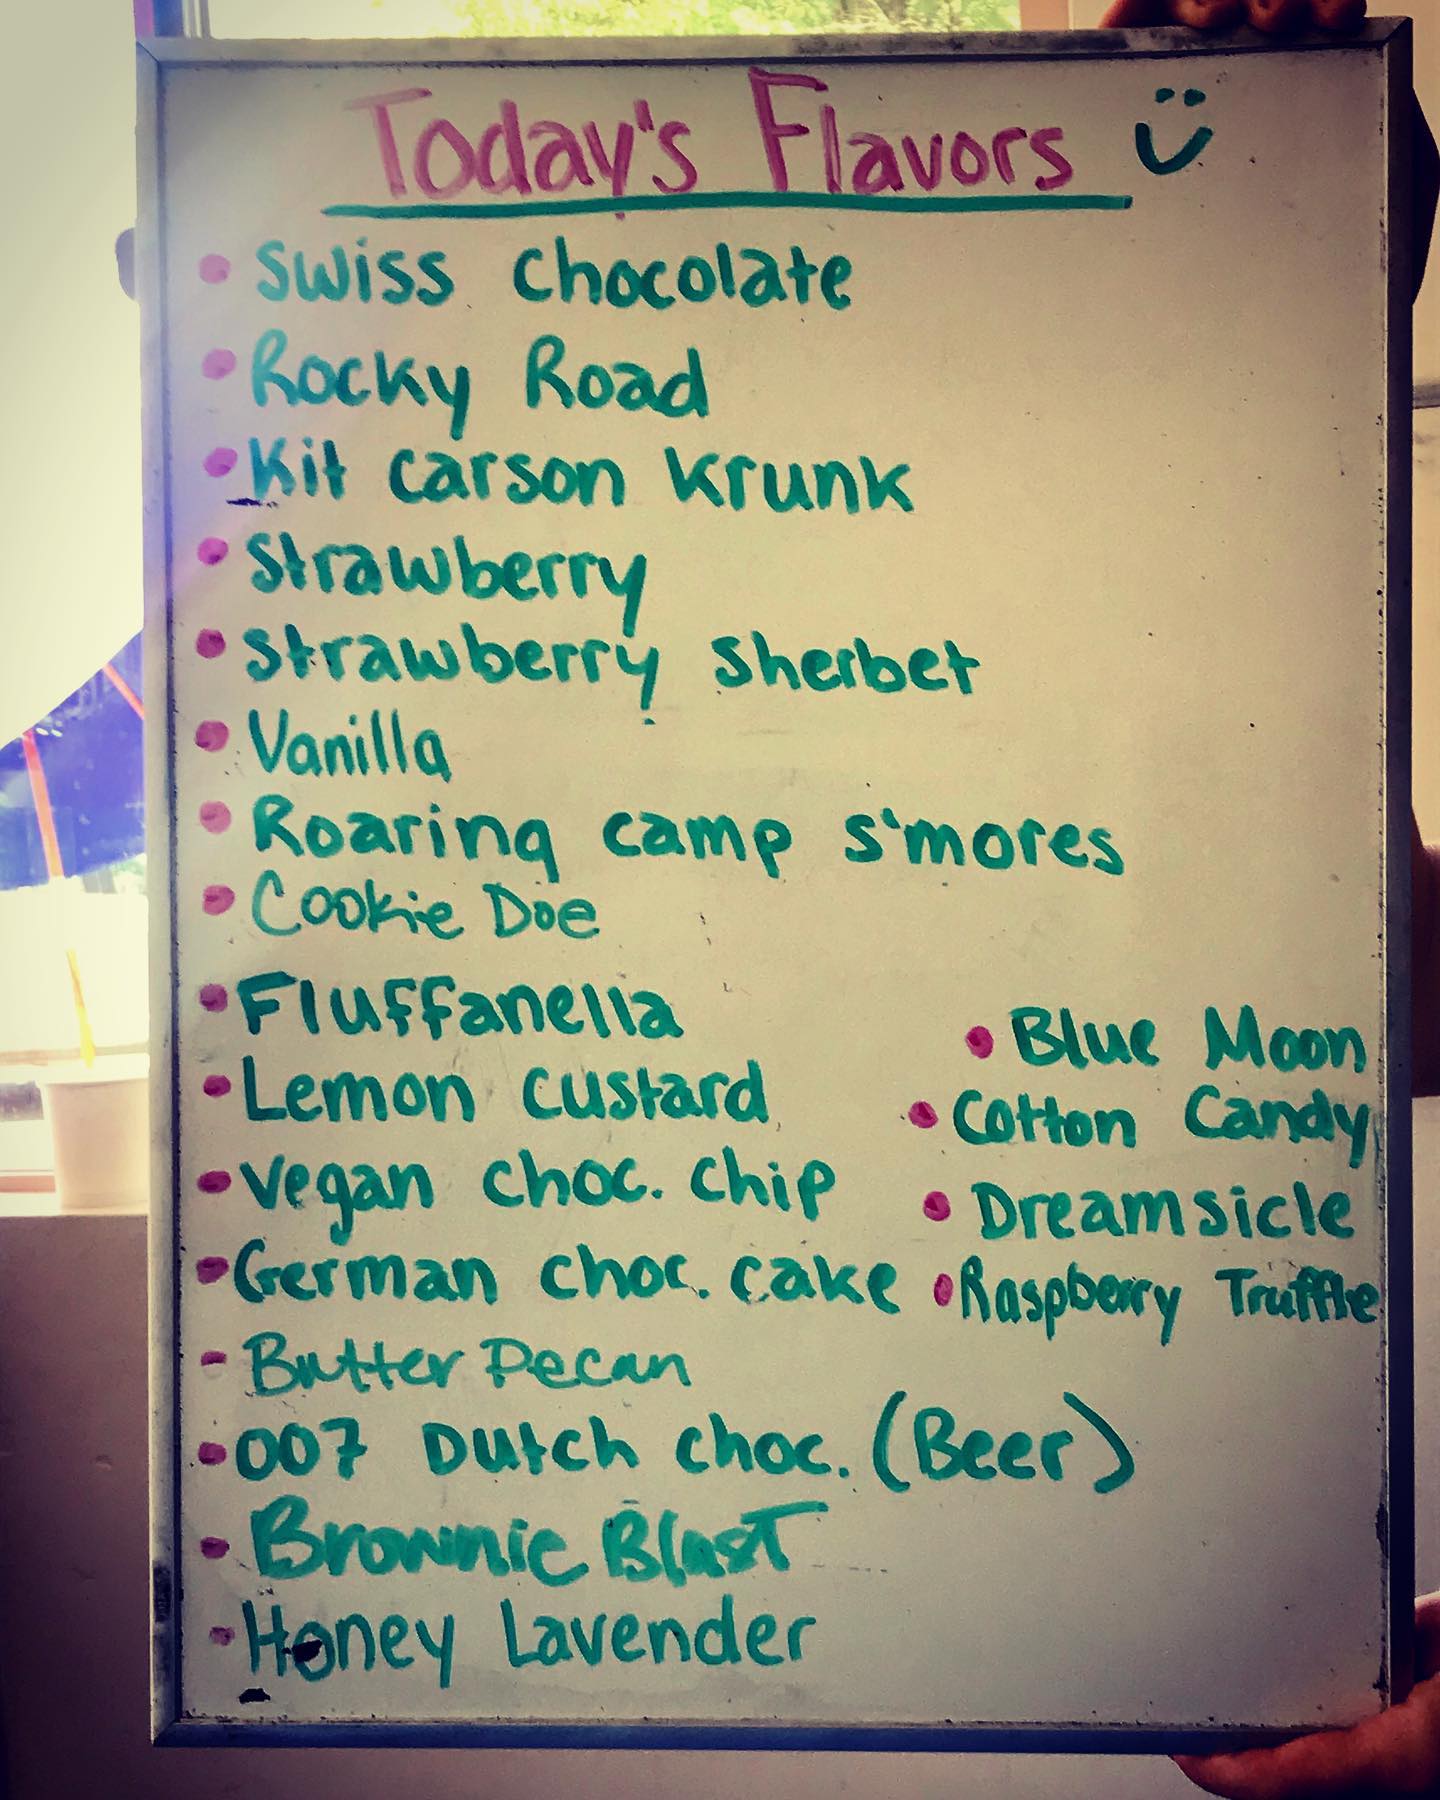 Today's Flavors
• Swiss chocolate
• Rocky Road
• Kit carson krunk
• Strawberry
• Strawberry sherbet
• Vanilla
• Roaring camp s'mores
• Cookie Doe
• Fluffanella
• Lemon custard
• vegan choc. chip
• German choc. cake
- Butter Pecan
• 007 Dutch choc. (Beer)
• Brownie Blast
• Honey Lavender
• Blue Moon
• Cotton Candy
• Dreamsicle
• Raspberry Truffle